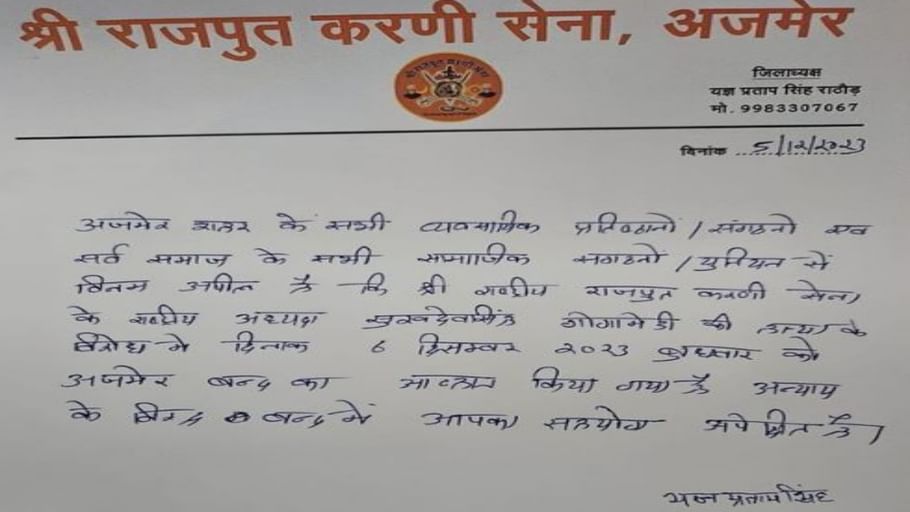 श्री राजपुत करणी सेना, अजमेर
जिलाध्यक्ष
यज्ञ प्रताप सिंह राठौड़
मो. 9983307067
दिनांक 5/12/2023
अजमेर शहर के सभी व्यवसायिक प्रतिष्ठानों / संगठनो एवं
सर्व समाज के सभी सामाजिक संगठनों / युनियन से
विनम्र अपील है कि श्री राष्ट्रीय राजपुत करणी सेना
के राष्ट्रीय अध्यक्ष सुखदेवसिंह गोगामेडी की हत्या के
विरोध मे दिनांक 6 दिसम्बर 2023 बुधवार को
अजमेर बन्द का आव्हान किया गया है अन्याय
के बन्द में आपका सहयोग अपेक्षित है।
यज्ञ प्रताप सिंह